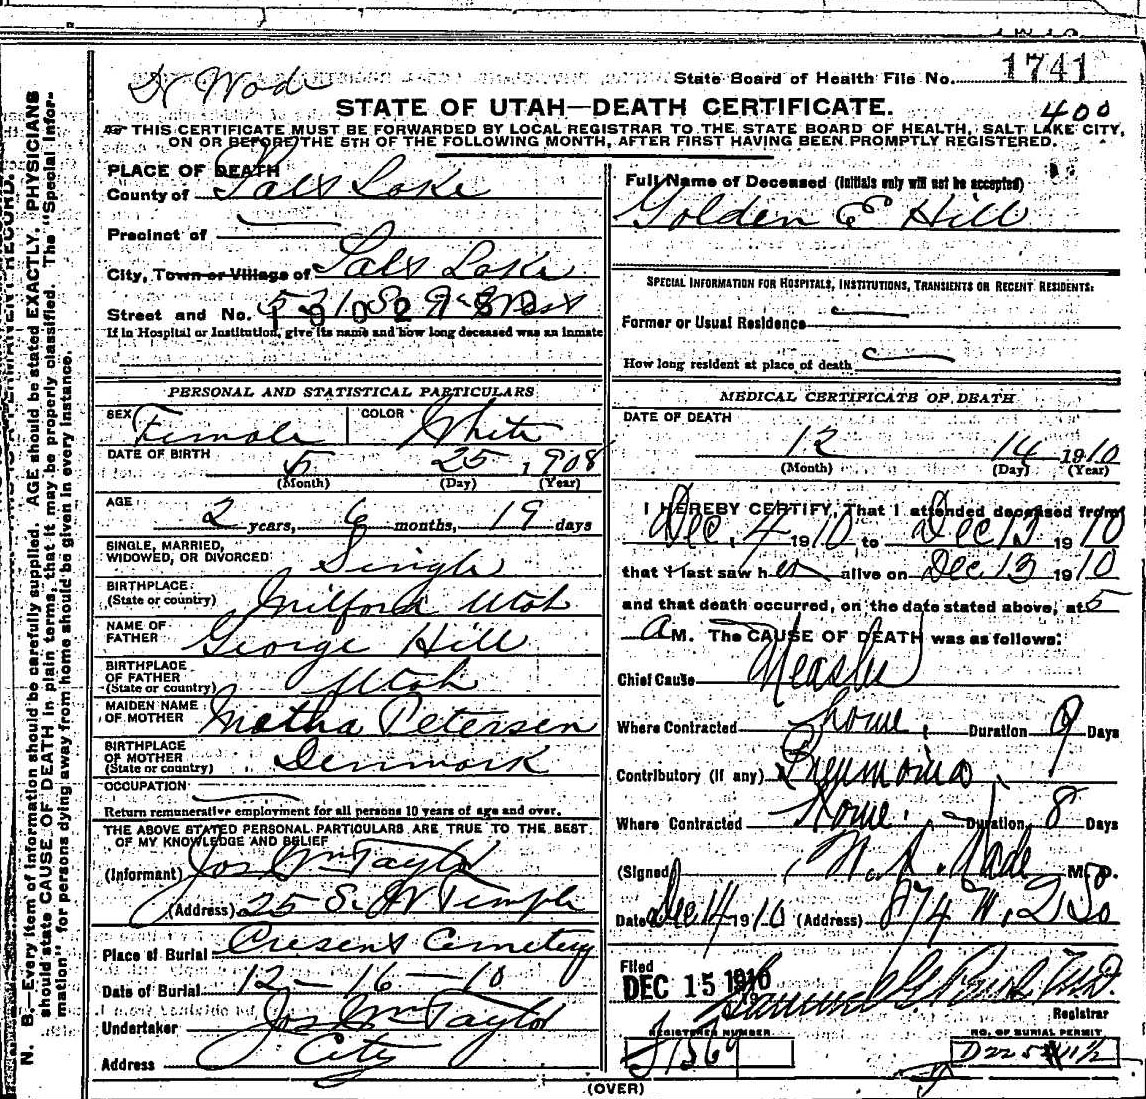 Dr Wade
State Board of Health File No. 1741
STATE OF UTAH—DEATH CERTIFICATE.
400
THIS CERTIFICATE MUST BE FORWARDED BY LOCAL REGISTRAR TO THE STATE BOARD OF HEALTH, SALT LAKE CITY,
ON OR BEFORE THE 5TH OF THE FOLLOWING MONTH, AFTER FIRST HAVING BEEN PROMPTLY REGISTERED.
PLACE OF DEATH
County of Salt Lake
Precinct of
City, Town or Village of Salt Lake
Street and No.
If in Hospital or Institution, give its name and how long deceased was an inmate
PERSONAL AND STATISTICAL PARTICULARS
SEX Female COLOR White
DATE OF BIRTH 5 25, 1908
(Month) (Day) (Year)
AGE 2 years, 6 months, 19 days
SINGLE, MARRIED,
WIDOWED, OR DIVORCED Single
BIRTHPLACE
(State or country) Milford Utah
NAME OF
FATHER George Hill
BIRTHPLACE
OF FATHER
(State or country) Utah
MAIDEN NAME
OF MOTHER Petersen
BIRTHPLACE
OF MOTHER
(State or country) Denmark
OCCUPATION
Return remunerative employment for all persons 10 years of age and over.
THE ABOVE STATED PERSONAL PARTICULARS ARE TRUE TO THE BEST
OF MY KNOWLEDGE AND BELIEF
(Informant) Jos Wm Taylor
(Address) 25 S. W Temple
Place of Burial Cresent Cemetery
Date of Burial 12—16—10
Undertaker Jos Wm Taylor
Address City
Full Name of Deceased (Initials only will not be accepted)
Golden E Hill
SPECIAL INFORMATION FOR HOSPITALS, INSTITUTIONS, TRANSIENTS OR RECENT RESIDENTS:
Former or Usual Residence
How long resident at place of death
MEDICAL CERTIFICATE OF DEATH
DATE OF DEATH
12 14 1910
(Month) (Day) (Year)
I HEREBY CERTIFY, That I attended deceased from
Dec. 4 1910 to Dec 13 1910
that I last saw her alive on Dec. 13 1910
and that death occurred, on the date stated above, at 5
A M. The CAUSE OF DEATH was as follows:
Chief Cause Measles
Where Contracted home, Duration 9 Days
Contributory (if any) Pneumonia
Where Contracted Home. Duration 8 Days
(Signed) Wade M. D.
Date Dec 14 1910 (Address)
Filed
DEC 15 1910
Registrar
REGISTERED NUMBER
NO. OF BURIAL PERMIT
(OVER)
N. B.—Every item of information should be carefully supplied. AGE should be stated EXACTLY. PHYSICIANS
should state CAUSE OF DEATH in plain terms, that it may be properly classified. The "Special Infor-
mation" for persons dying away from home should be given in every instance.